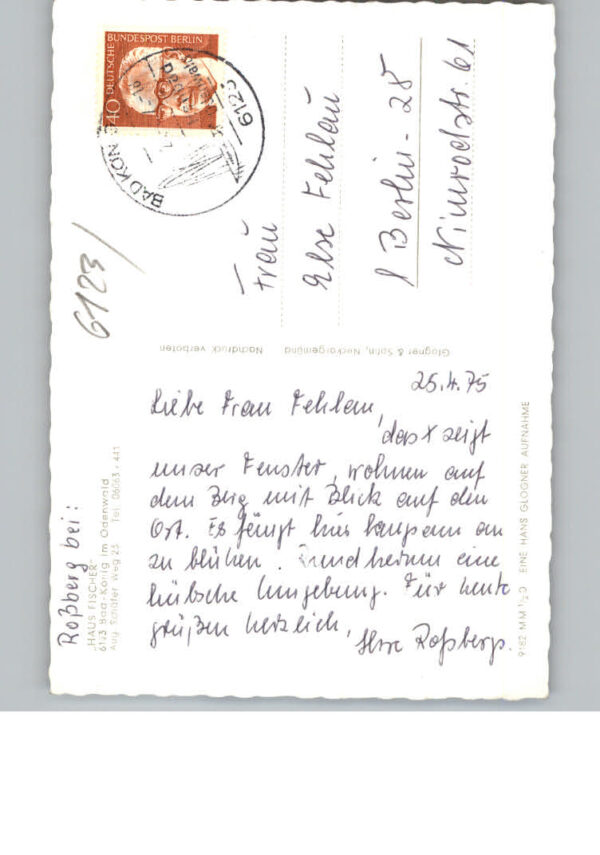 DEUTSCHE BUNDESPOST BERLIN
40
BAD KÖN
6123
6123/
Frau
Else Fehlau
1 Berlin - 28
Nimrodstr. 61
Glogner & Sohn, Neckargemünd Nachdruck verboten
25.4.75
Liebe Frau Fehlau,
das x zeigt
unser Fenster, wohnen auf
dem Berg mit Blick auf den
Ort. Es fängt hier langsam an
zu blühen. Rundherum eine
hübsche Umgebung. Für heute
grüßen herzlich,
Ihre Roßbergs.
Roßberg bei:
„HAUS FISCHER"
6123 Bad-König im Odenwald
Aug. Schäfer Weg 25 Tel. 06063 - 441
EINE HANS GLOGNER AUFNAHME
9182 MM